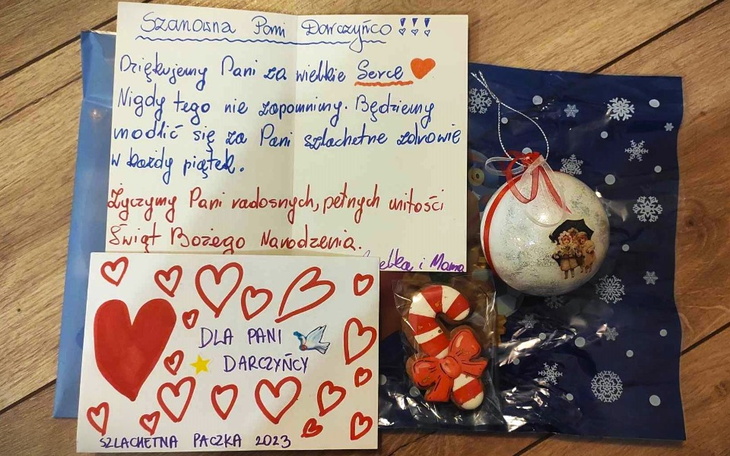 Szanowna Pani Darczyńco !!!
Dziękujemy Pani za wielkie Serce
Nigdy tego nie zapomnimy. Będziemy
modlić się za Pani szlachetne zdrowie
w każdy piątek.
Życzymy Pani radosnych, pełnych miłości
Świąt Bożego Narodzenia.
i Mama
DLA PANI
DARCZYŃCY
SZLACHETNA PACZKA 2023